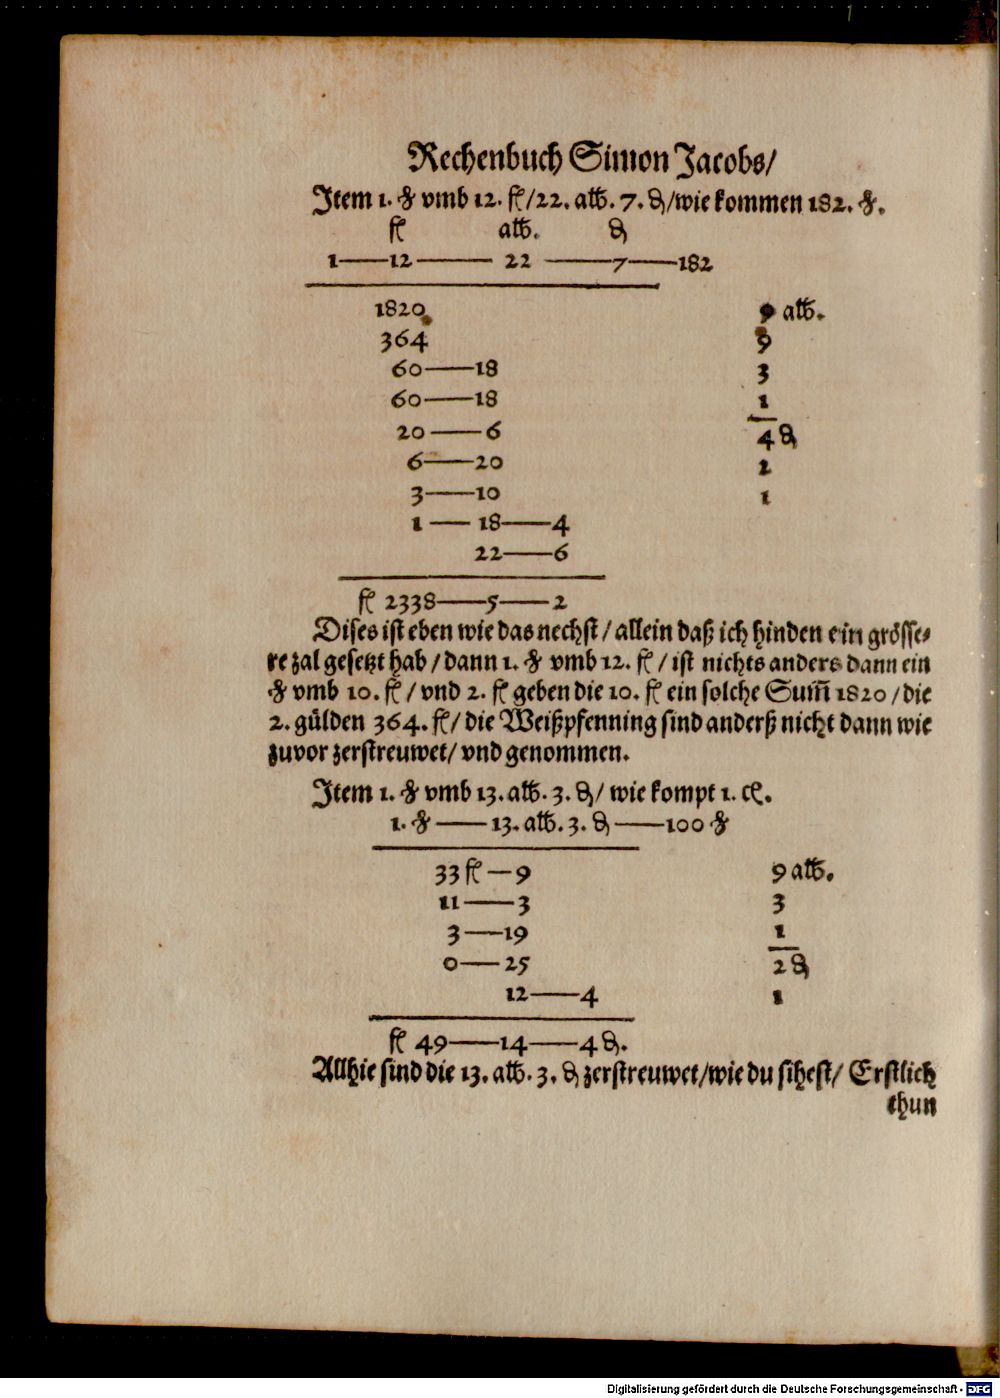 Rechenbuch Simon Jacobs/
Item 1. ℔ vmb 12. fl/22. alb. 7. ₰/wie kommen 182. ℔.
fl alb. ₰
1——12——— 22 ———7——182
1820 9 alb.
364 9
60——18 3
60——18 1
20——6 4 ₰
6——20 2
3——10 1
1—— 18——4
22——6
fl 2338——5——2
Dises ist eben wie das nechst/ allein daß ich hinden ein grösse-
re zal gesetzt hab/ dann 1. ℔ vmb 12. fl/ ist nichts anders dann ein
℔ vmb 10. fl/ vnd 2. fl geben die 10. fl ein solche Sum̄ 1820/ die
2. gülden 364. fl/ die Weißpfenning sind anderß nicht dann wie
zuvor zerstreuwet/ vnd genommen.
Item 1. ℔ vmb 13. alb. 3. ₰/ wie kompt 1. ct.
1. ℔ —— 13. alb. 3. ₰ ——100 ℔
33 fl—9 9 alb.
11——3 3
3——19 1
0——25 2 ₰
12——4 1
fl 49——14——4 ₰.
Allhie sind die 13. alb. 3. ₰ zerstreuwet/wie du sihest/ Erstlich
thun
Digitalisierung gefördert durch die Deutsche Forschungsgemeinschaft - DFG